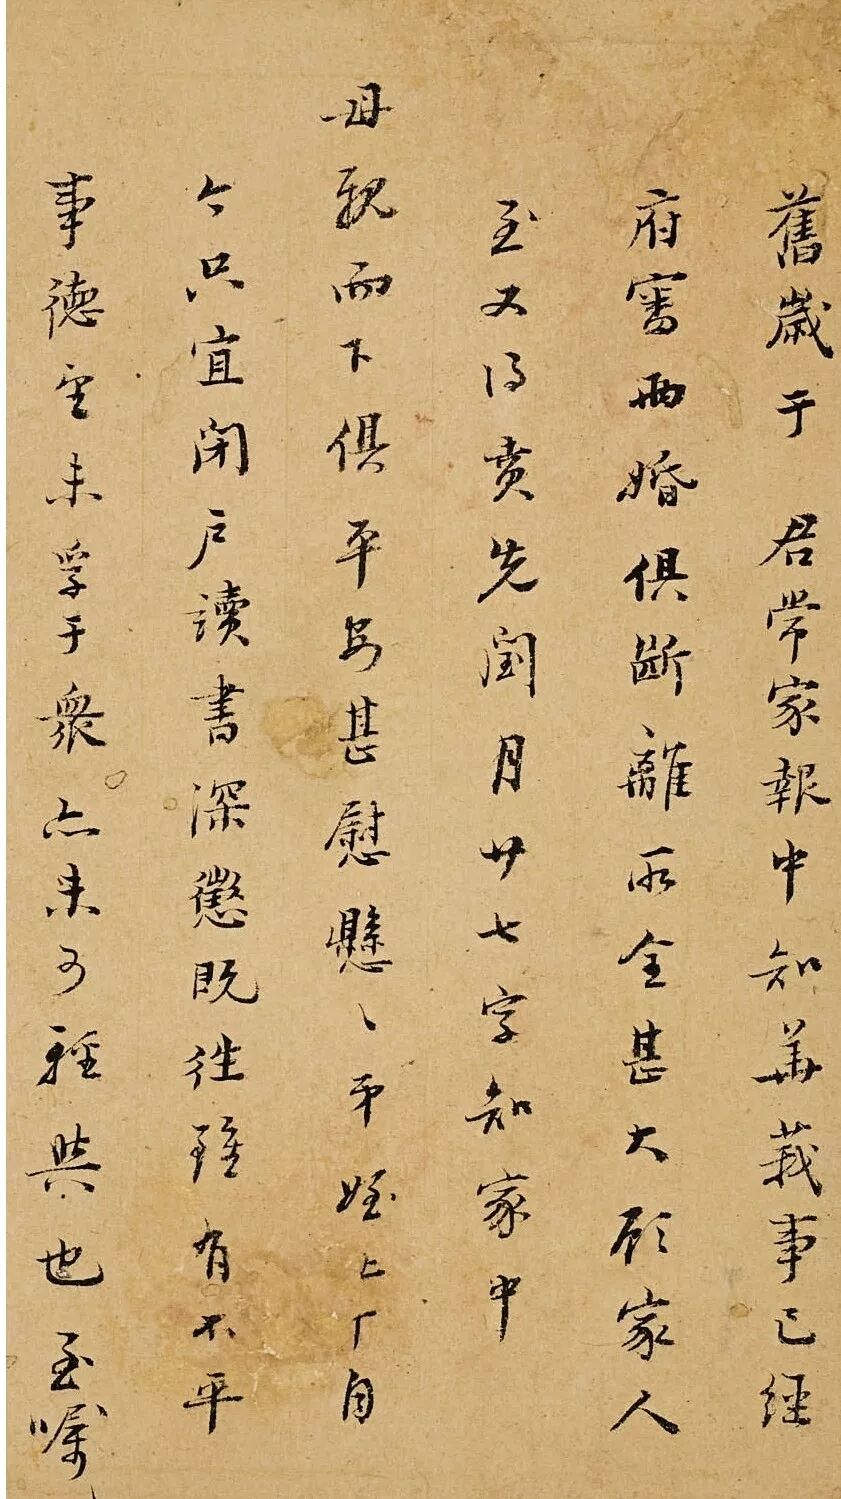 舊歲于君常家報中知華莪事已經
府審兩婚俱斷離所全甚大顧家人
至又得賁先閏月廿七字知家中
母親而下俱平安甚慰懸〻弟姪上下自
今只宜閉户讀書深懲既往雖有不平
事德望未孚于衆亦未可輕與也至囑